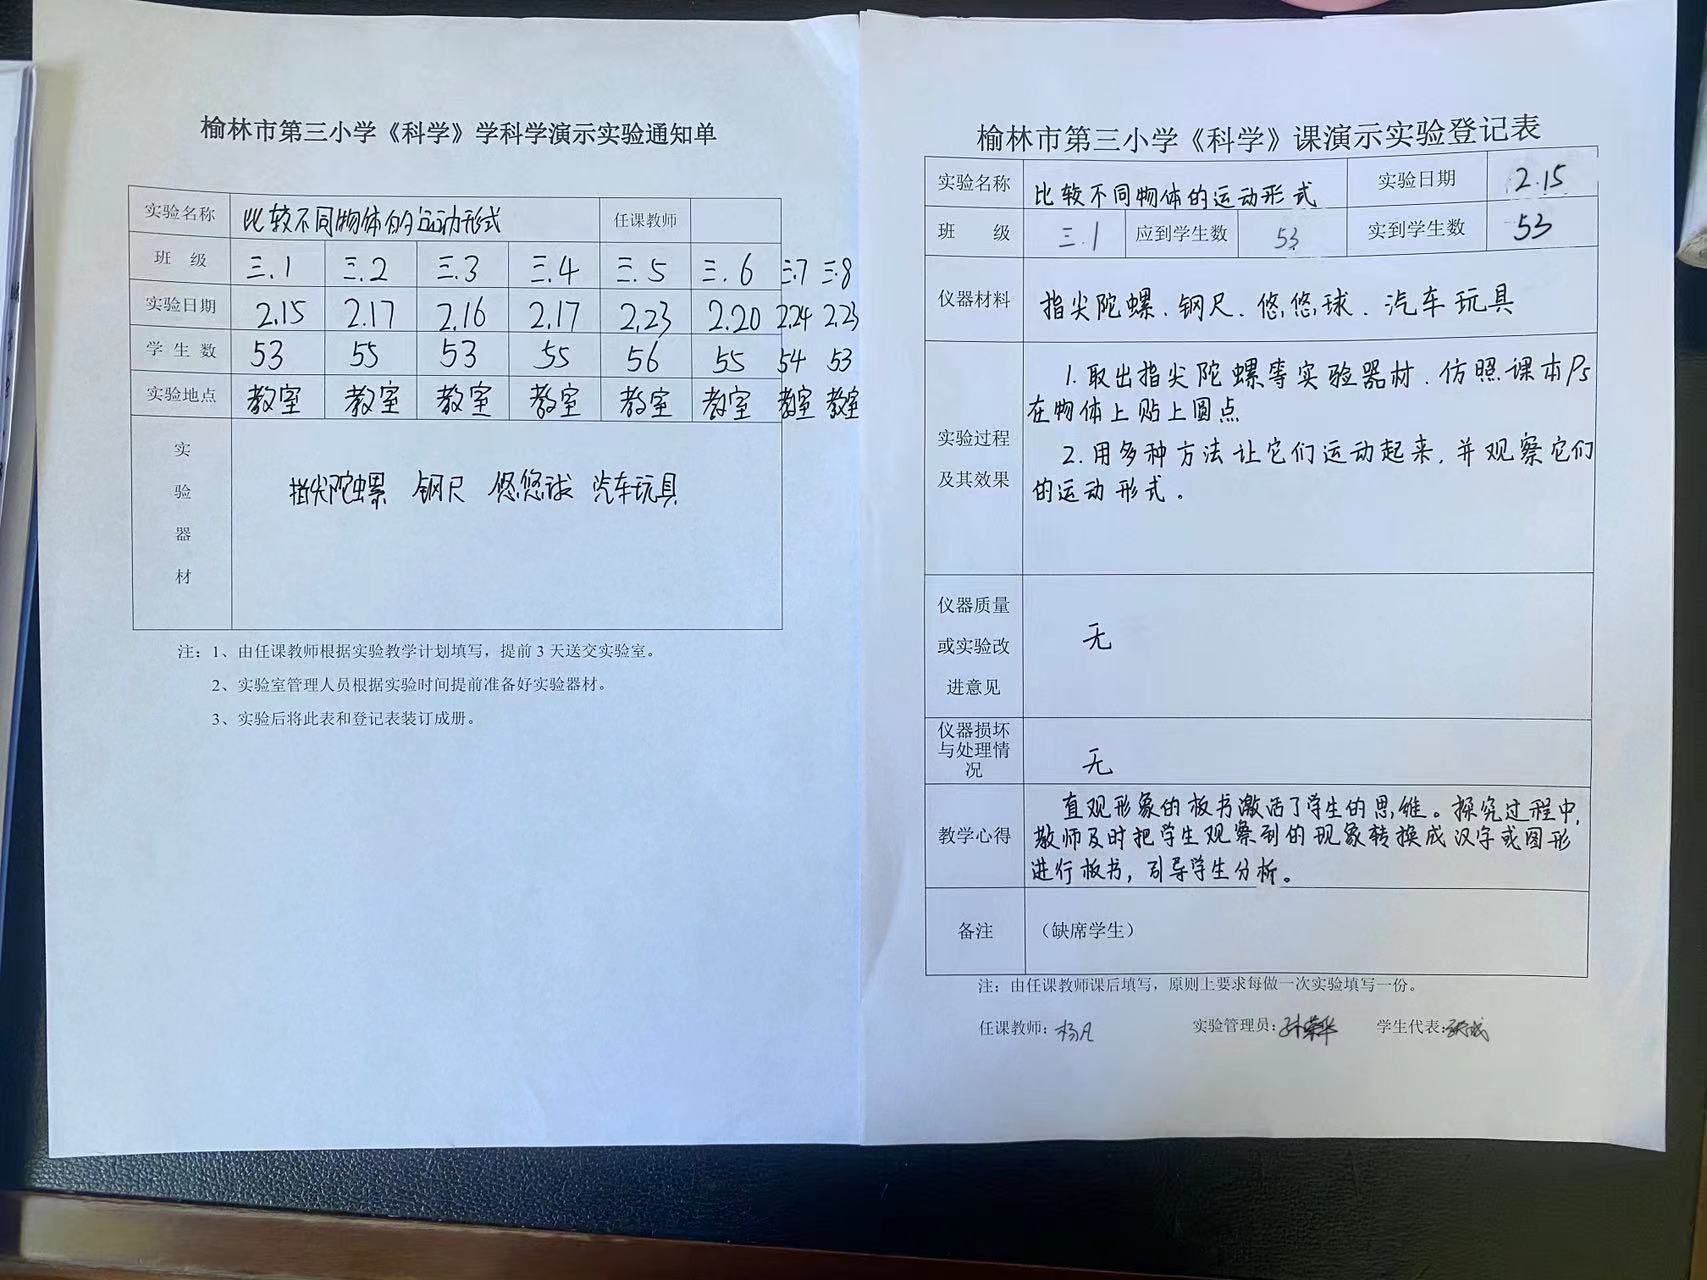 榆林市第三小学《科学》学科学演示实验通知单
实验名称 比较不同物体的运动形式 任课教师
班 级 三.1 三.2 三.3 三.4 三.5 三.6 三.7 三.8
实验日期 2.15 2.17 2.16 2.17 2.23 2.20 2.24 2.23
学 生 数 53 55 53 55 56 55 54 53
实验地点 教室 教室 教室 教室 教室 教室 教室 教室
实验器材 指尖陀螺 钢尺 悠悠球 汽车玩具
注：1、由任课教师根据实验教学计划填写，提前 3 天送交实验室。
2、实验室管理人员根据实验时间提前准备好实验器材。
3、实验后将此表和登记表装订成册。
榆林市第三小学《科学》课演示实验登记表
实验名称 比较不同物体的运动形式 实验日期 2.15
班 级 三.1 应到学生数 53 实到学生数 53
仪器材料 指尖陀螺、钢尺、悠悠球、汽车玩具
实验过程
及其效果
1.取出指尖陀螺等实验器材.仿照课本P5
在物体上贴上圆点
2.用多种方法让它们运动起来,并观察它们
的运动形式。
仪器质量
或实验改
进意见
无
仪器损坏
与处理情
况
无
教学心得
直观形象的板书激活了学生的思维。探究过程中,
教师及时把学生观察到的现象转换成汉字或图形
进行板书,引导学生分析。
备注 （缺席学生）
注：由任课教师课后填写，原则上要求每做一次实验填写一份。
任课教师：杨凡 实验管理员： 学生代表：